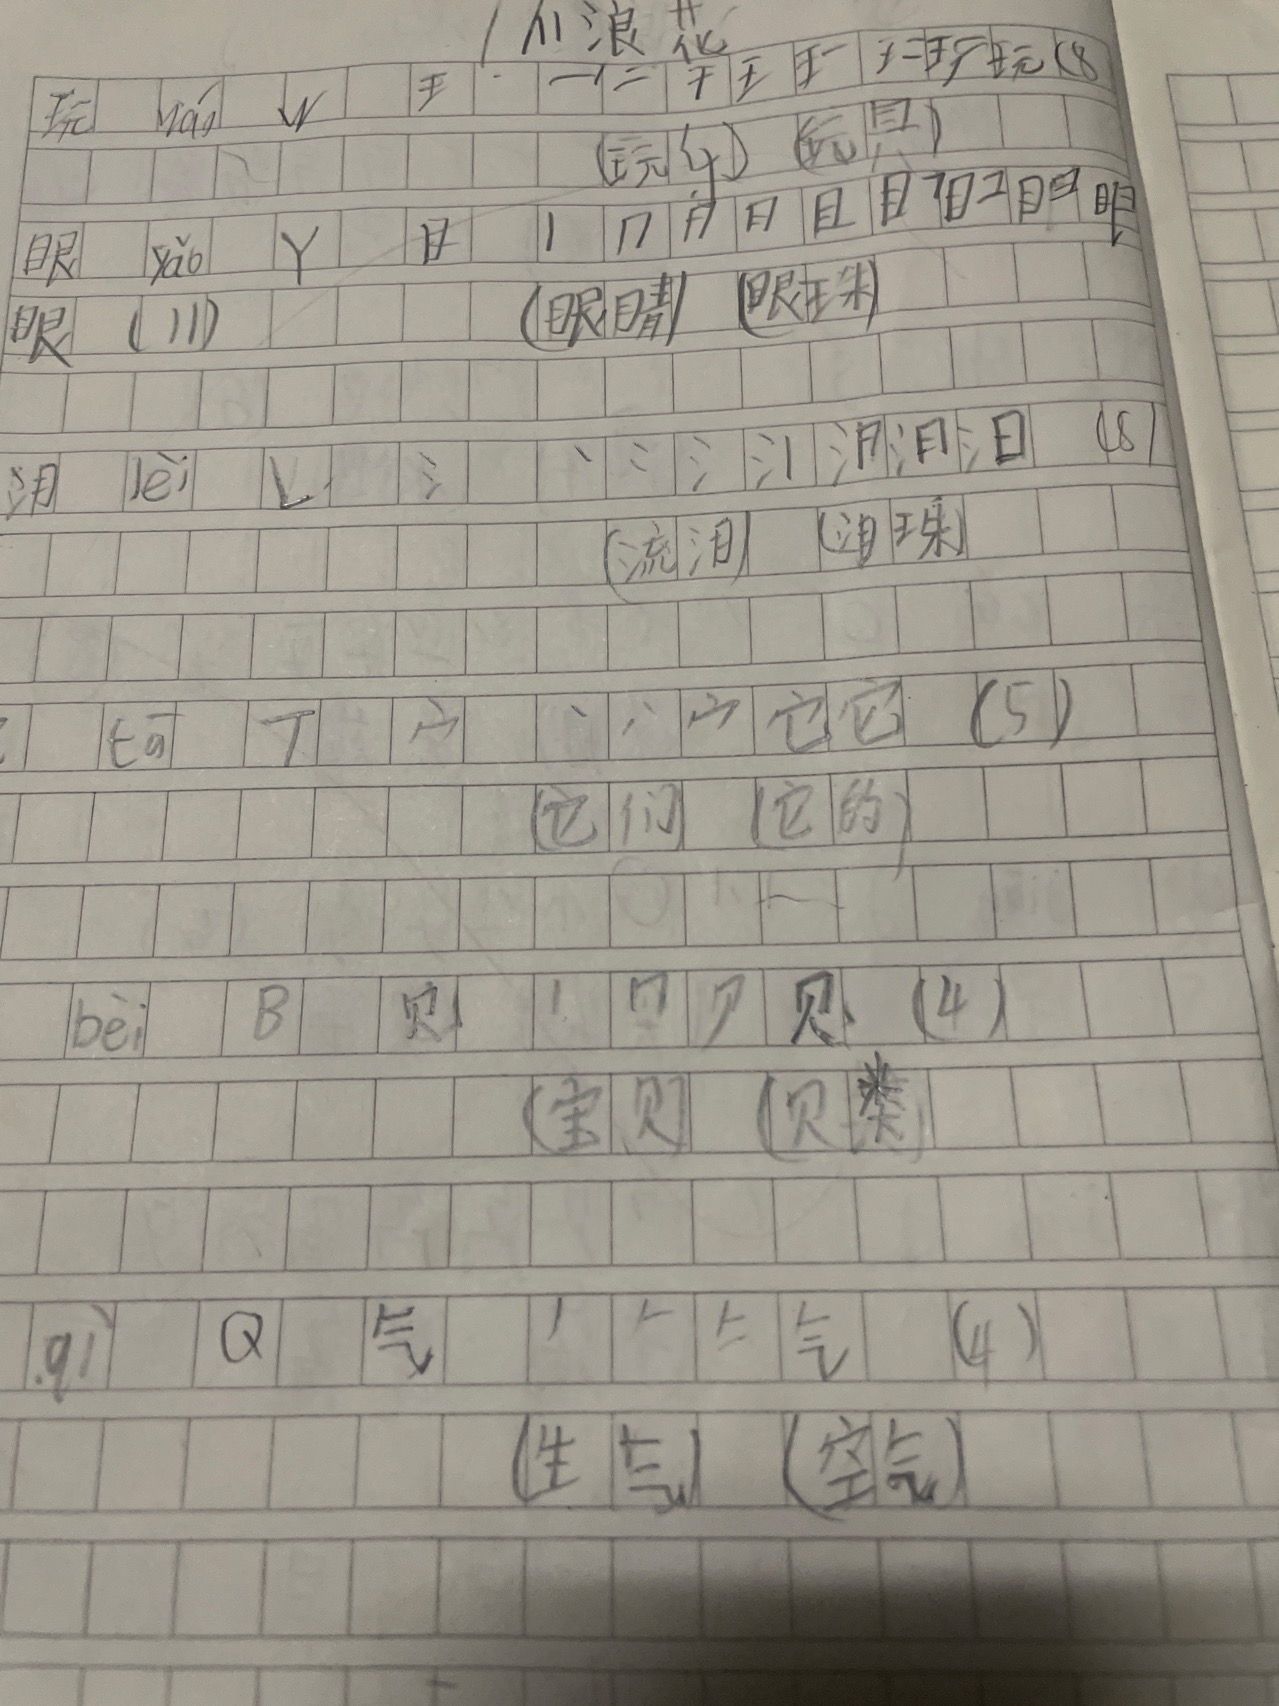 小浪花
玩 wán W 王 一 二 干 王 王一 王二 玩 (8
(玩乐) (玩具)
眼 yǎo Y 目 丨 冂 月 日 目 眼
眼 (11) (眼睛) (眼珠)
泪 lèi L 氵 丶 冫 氵 泪 (8)
(流泪) (泪珠)
tā T 宀 丶 丷 宀 它 它 (5)
(它们) (它的)
bèi B 贝 丨 冂 贝 (4)
(宝贝) (贝类)
qì Q 气 丿 𠂉 气 (4)
(生气) (空气)